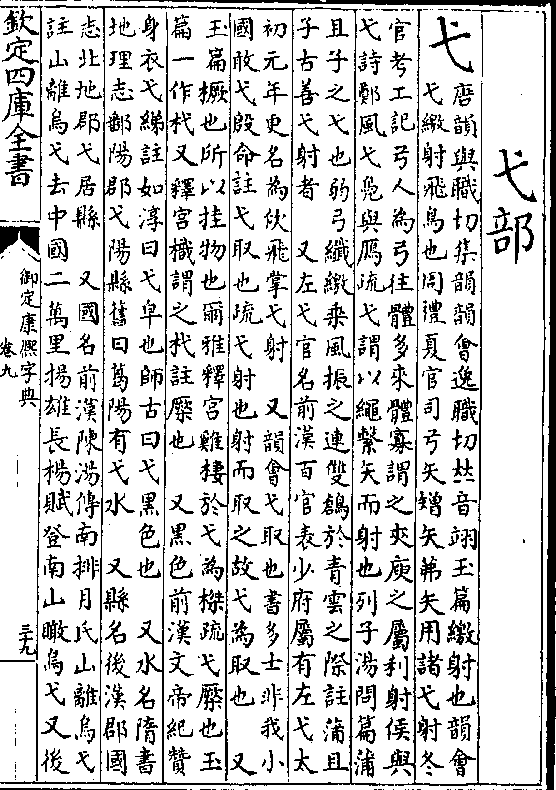 弋部
弋
唐韻與職切集韻韻會逸職切𠀤音翊玉篇繳射也韻會
弋繳射飛鳥也周禮夏官司弓矢矰矢茀矢用諸弋射冬
官考工記弓人為弓往體多來體寡謂之夾庾之屬利射侯與
弋詩鄭風弋鳧與鴈疏弋謂以繩繫矢而射也列子湯問篇蒲
且子之弋也弱弓纖繳乘風振之連雙鶬於青雲之際註蒲且
子古善弋射者 又左弋官名前漢百官表少府屬有左弋太
初元年更名為佽飛掌弋射 又韻會弋取也書多士非我小
國敢弋殷命註弋取也疏弋射也射而取之故弋為取也 又
玉篇橛也所以挂物也爾雅釋宮雞棲於弋為榤疏弋橜也玉
篇一作杙又釋宮樴謂之杙註橜也 又黑色前漢文帝紀贊
身衣弋綈註如淳曰弋皁也師古曰弋黑色也 又水名隋書
地理志鄱陽郡弋陽縣舊曰葛陽有弋水 又縣名後漢郡國
志北地郡弋居縣 又國名前漢陳湯傳南排月氏山離烏弋
註山離烏弋去中國二萬里揚雄長楊賦登南山瞰烏弋又後
欽定四庫全書
御定康熙字典
卷九
三十九